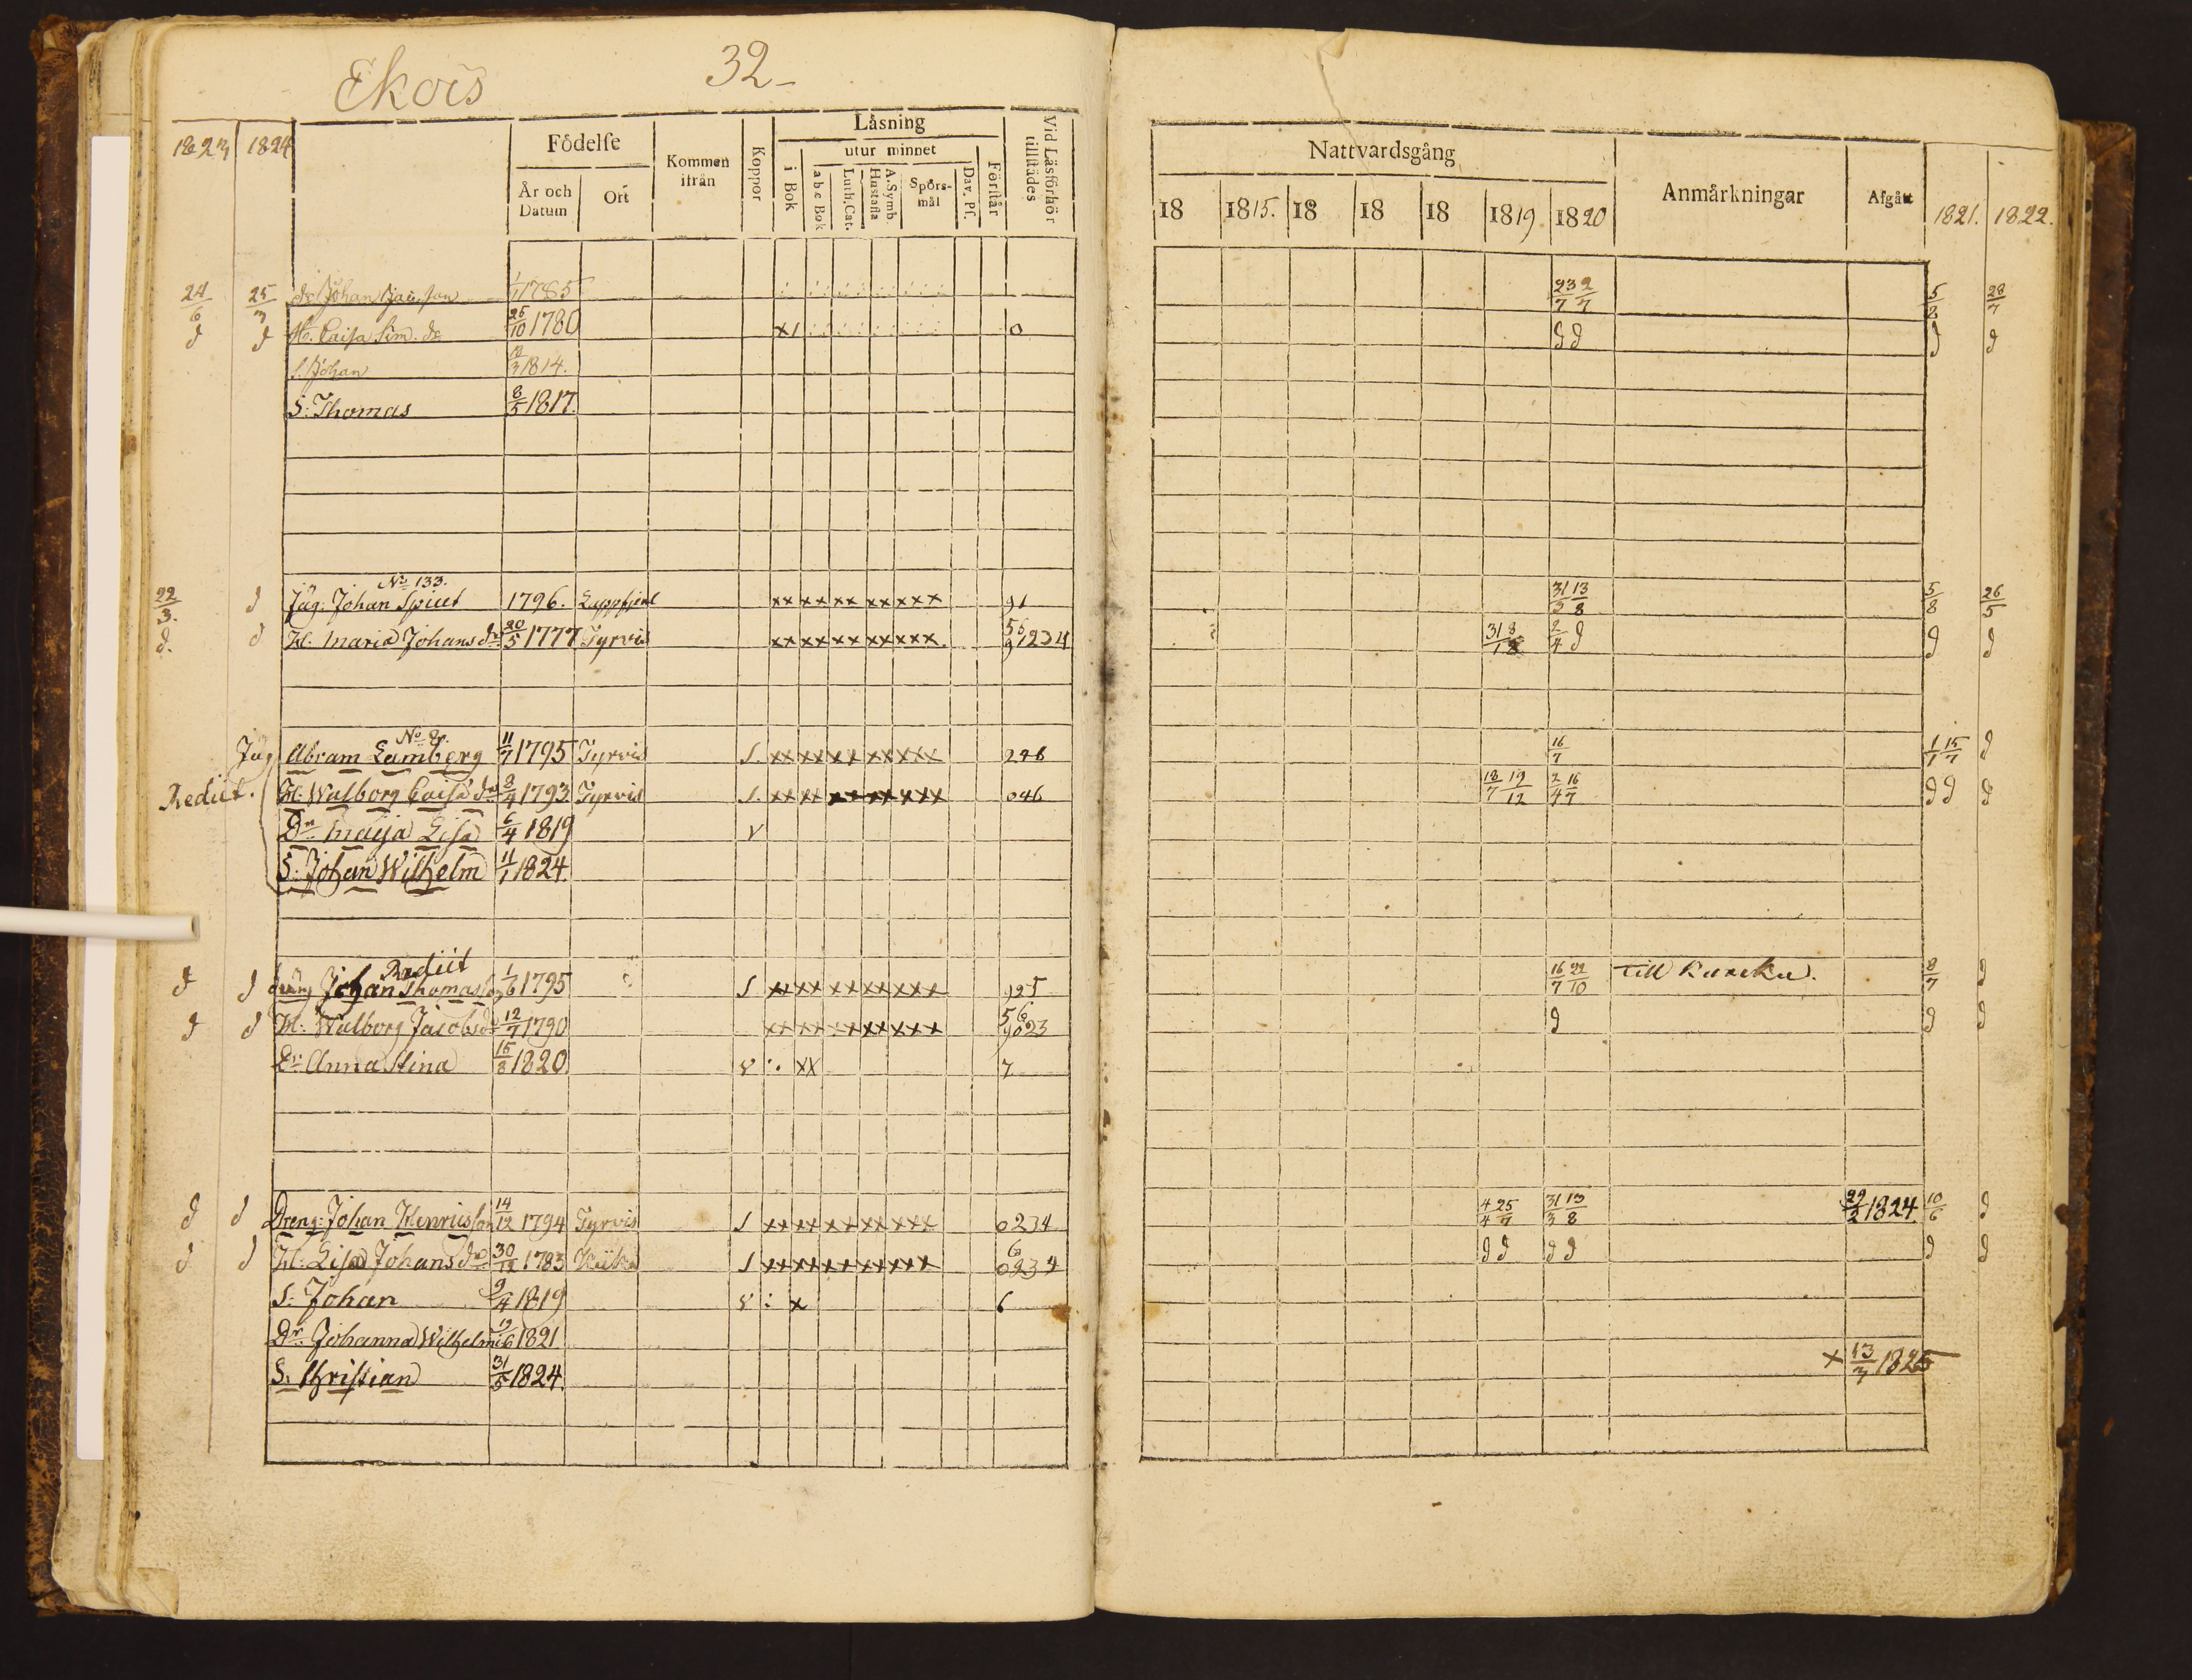 Ekois 32
1823 1824 Födelse Kommen ifrån Koppor Läsning Vid Läsförhör tillstädes Nattvardsgång Anmärkningar Afgått 1821. 1822.
År och Datum Ort i Bok utur minnet Förstår
a b c Bok Luth. Cat. A. Symb. Hustafla Spörsmål Dav. Ps. 18 1815. 18 18 18 1819 1820
24/6 25/3 dr Johan 1/1 1785 23/7 2/7 5/8 28/7
d d H. Caisa Sim. dr 26/10 1780 x1 0 d d d d
S. Johan 3 1814.
S: Thomas 8/5 1817.
No 133.
22/3. d Jäg: Johan Spiut 1796. Lappfjerd xx xx xx xx xxx 91 31/3 13/8 5/8 26/5
d. d H: Maria Johans dr 20/5 1777 Tyrvis xx xx xx xx xxx 56 91234 2/4 d d d
No 2.
Jäg Abram Lemberg 11/7 1795 Tyrvis S. xx xx xx xx xxx 246 16/7 1/1 15/7 d
Rediit. H: Walborg Caisa dr 8/4 1793. Tyrvis S. xx xx xx xx xxx 046 18/7 19/12 2/4 16/7 d d d
Dr Maija Lisa 6/4 1819 v
S: Johan Wilhelm 11/1 1824.
Rediit
d d dräng Johan Thomasson 1/6 1795 S xx xx xx xx xxx 925 16/7 22/10 Till Kureku. 8/7 d
d d H: Walborg Jacobs dr 12/7 1790 xx xx xx xx xxx 56 9023 d d d
Dr Anna Stina 15/8 1820. v : xx 7
d d Dreng: Johan Henricsson 14/12 1794 Tyrvis S xx xx xx xx xxx 0234 4/4 25/7 31/3 13/8 29/2 1824. 10/6 d
d d H: Lisa Johans dr 30/12 1783 Kiika S xx xx xx xx xxx 6 0234 d d d d d d
S: Johan 9/4 1819 v : x 6
Dr Johanna Wilhelmi 19/6 1821
S. Christian 31/5 1824. x 13/3 1825